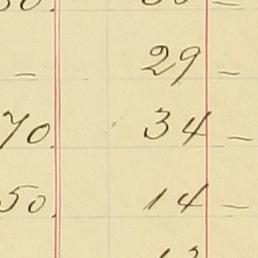 — 29 —
70 34 —
50 14 —